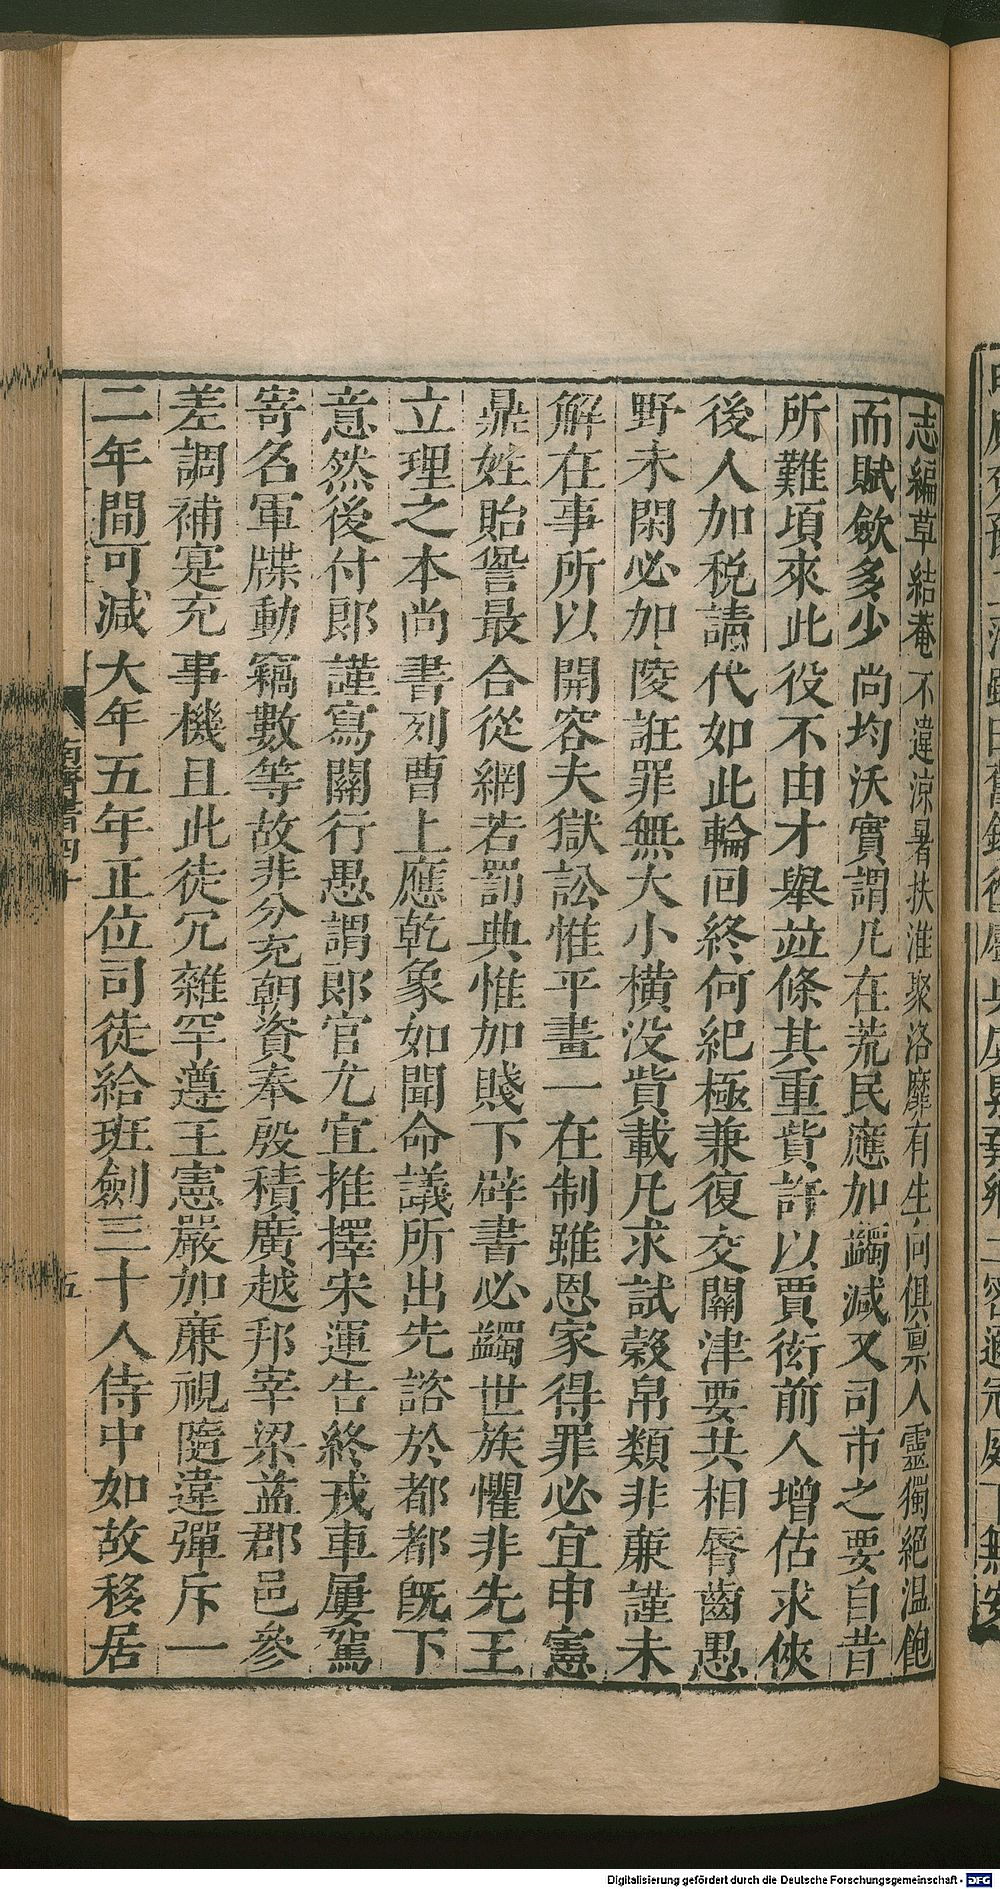 志編草結菴不違涼暑扶淮聚洛靡有生向俱稟人靈獨絕溫飽
而賦斂多少尚均沃實謂凡在荒民應加蠲減又司市之要自昔
所難頃來此役不由才舉並條其重貲許以賈衒前人增估求俠
後人加稅請代如此輪回終何紀極兼復交關津要共相脣齒愚
野未閑必加陵誑罪無大小橫沒貲載凡求試穀帛類非亷謹未
解在事所以開容夫獄訟惟平畫一在制雖恩家得罪必宜申憲
鼎姓貽諐最合從網若罰典惟加賤下辟書必蠲世族懼非先王
立理之本尚書列曹上應乾象如聞命議所出先諮於都都旣下
意然後付郎謹寫關行愚謂郎官尤宜推擇宋運告終戎車屢駕
寄名軍牒動竊數等故非分充朝資奉殷積廣越邦宰梁益郡邑參
差調補寔充事機且此徒冗雜罕遵王憲嚴加亷視隨違彈斥一
二年間可減大年五年正位司徒給班劍三十人侍中如故移居
南齊書四十
五
Digitalisierung gefördert durch die Deutsche Forschungsgemeinschaft - DFG